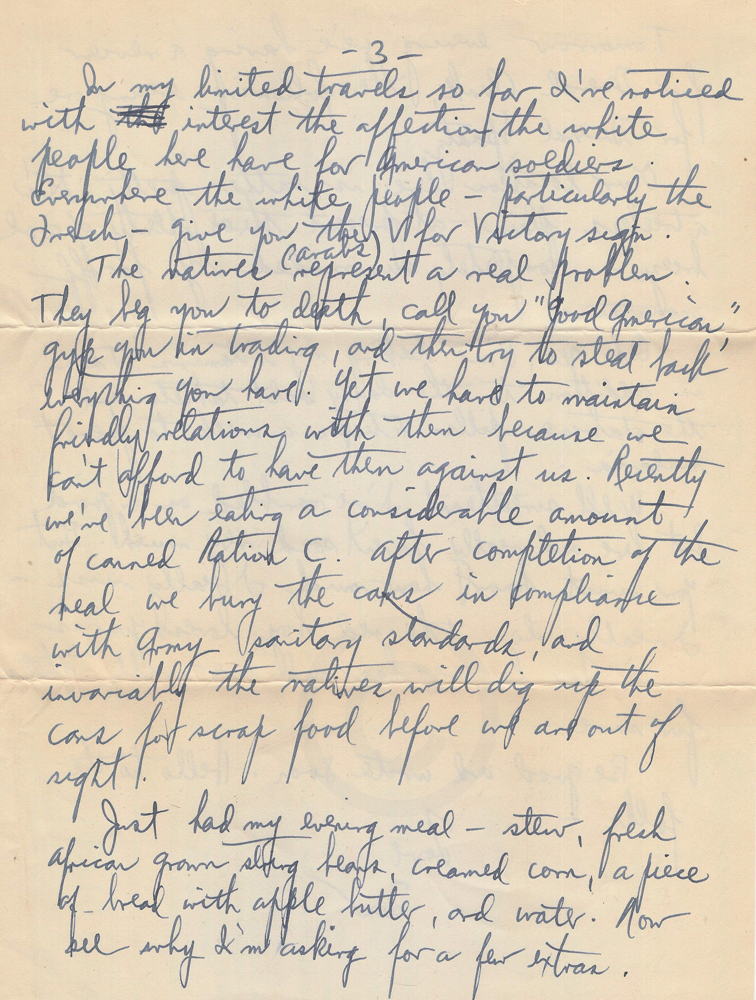 - 3 -
In my limited travels so far I've noticed
with the interest the affection the white
people here have for American soldiers.
Everywhere the white people - particularly the
French - give you the V for Victory sign.
(arabs)
The natives represent a real problem.
They beg you to death, call you "Good American",
gyp you in trading, and then try to steal back
everything you have. Yet we have to maintain
friendly relations with them because we
can't afford to have them against us. Recently
we've been eating a considerable amount
of canned Ration C. After completion of the
meal we bury the cans in compliance
with Army sanitary standards, and
invariably the natives will dig up the
cans for scrap food before we are out of
sight.
Just had my evening meal - stew, fresh
African grown string beans, creamed corn, a piece
of bread with apple butter, and water. Now
see why I'm asking for a few extras.